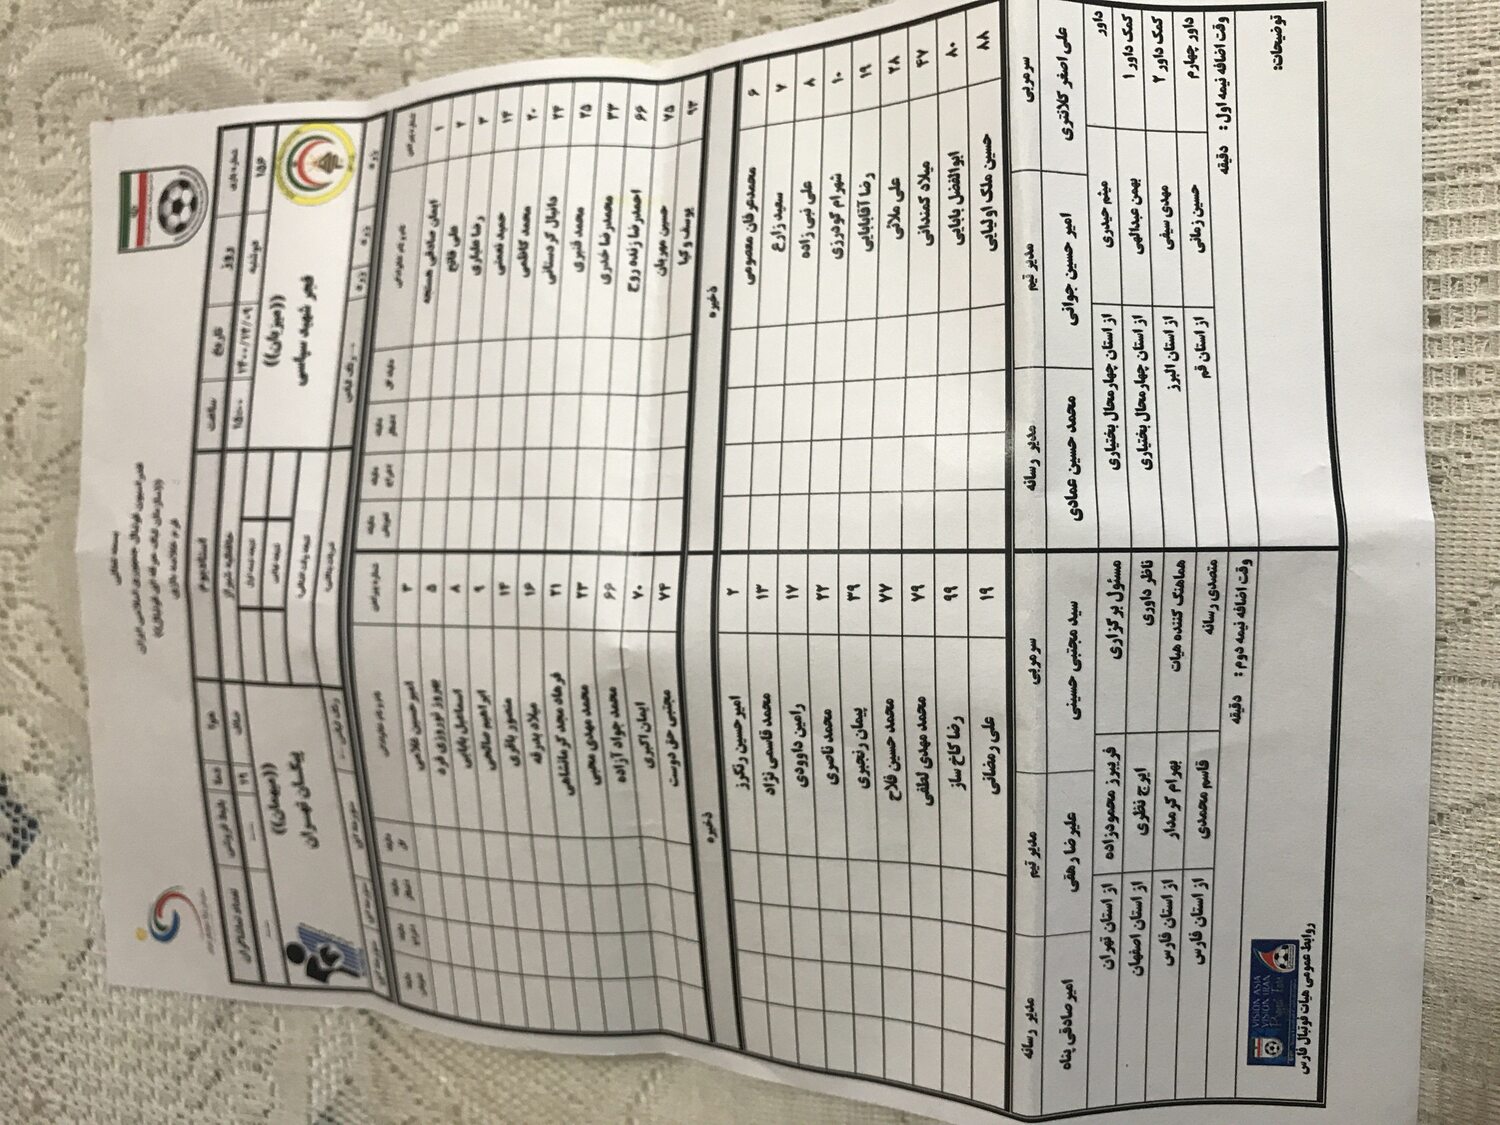 بسمه تعالی
فدراسیون فوتبال جمهوری اسلامی ایران
((سازمان لیگ حرفه ای فوتبال))
فرم خلاصه بازی
شماره بازی روز تاریخ ساعت استادیوم هوا دما
۱۵۶ دوشنبه ۱۵:۰۰ حافظیه شیراز صاف ۱۹
فجر شهید سپاسی
((میزبان))
پیکان تهران
((میهمان))
۱ ایمان صادقی هستجه ۳ امیرحسین غلامی
۲ علی فاتح ۵ بهروز نوروزی فرد
۳ رضا علیاری ۸ اسماعیل بابایی
۱۴ حمید نعمتی ۹ ابراهیم صالحی
۲۰ محمد کاظمی ۱۴ منصور باقری
۲۴ دانیال کردستانی ۱۶ میلاد بدرقه
۲۵ محمد قنبری ۲۱ فرهاد مجد کرمانشاهی
۳۳ محمدرضا خدری ۲۳ محمد مهدی محبی
۶۶ احمدرضا زنده روح ۶۶ محمد جواد آزاده
۷۵ حسین مهربان ۷۰ ایمان اکبری
۹۳ یوسف وکیا ۷۴ مجتبی حق دوست
ذخیره ذخیره
۶ محمدعرفان معصومی ۲ امیرحسین رنگرز
۷ سعید زارع ۱۳ محمد قاسمی نژاد
۸ علی نبی زاده ۱۷ رامین داوودی
۱۰ شهرام گودرزی ۲۲ محمد ناصری
۱۹ رضا آقابابایی ۳۹ پیمان رنجبری
۲۸ علی ملائی ۷۷ محمد حسین فلاح
۴۷ میلاد کمندانی ۷۹ محمد مهدی لطفی
۸۰ ابوالفضل بابایی ۹۹ رضا کاخ ساز
۸۸ حسین ملک اولیایی ۱۹ علی رمضانی
سرمربی مدیر تیم مدیر رسانه سرمربی مدیر تیم مدیر رسانه
علی اصغر کلانتری امیر حسین جوانی محمد حسین عمادی سید مجتبی حسینی علیرضا رهقی امیرصادقی پناه
داور میثم حیدری از استان چهارمحال بختیاری مسئول برگزاری فریبرز محمودزاده از استان تهران
کمک داور ۱ بهمن عبدالهی از استان چهارمحال بختیاری ناظر داوری ایرج نظری از استان اصفهان
کمک داور ۲ مهدی سیفی از استان البرز هماهنگ کننده هیات بهرام کرمدار از استان فارس
داور چهارم حسین زمانی از استان قم متصدی رسانه قاسم محمدی از استان فارس
وقت اضافه نیمه اول: دقیقه وقت اضافه نیمه دوم: دقیقه
توضیحات:
VISION ASIA
VISION IRAN
روابط عمومی هیات فوتبال فارس